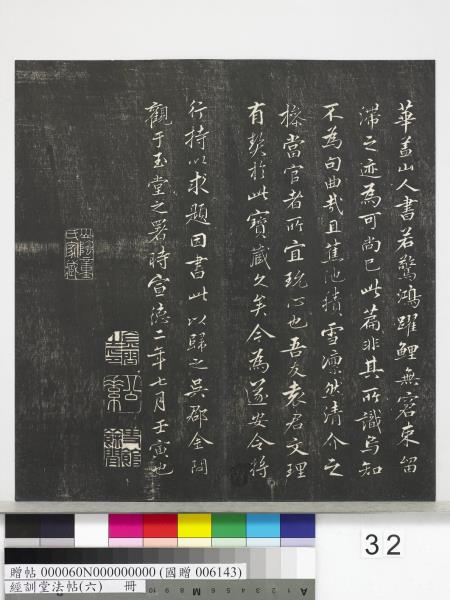 華蓋山人書若驚鴻躍鯉無容束留
滯之迹為可尚已此篇非其所識烏知
不為句曲哉且蕉池積雪凜然清介之
操當官者所宜玩心也吾友袁君文理
有契於此寶藏久矣今為遂安令將
行持以求題因書此以歸之吳郡金問
觀于玉堂之署時宣德二年七月壬寅也
32
贈帖 000060N000000000 (國贈 006143)
經訓堂法帖(六) 冊